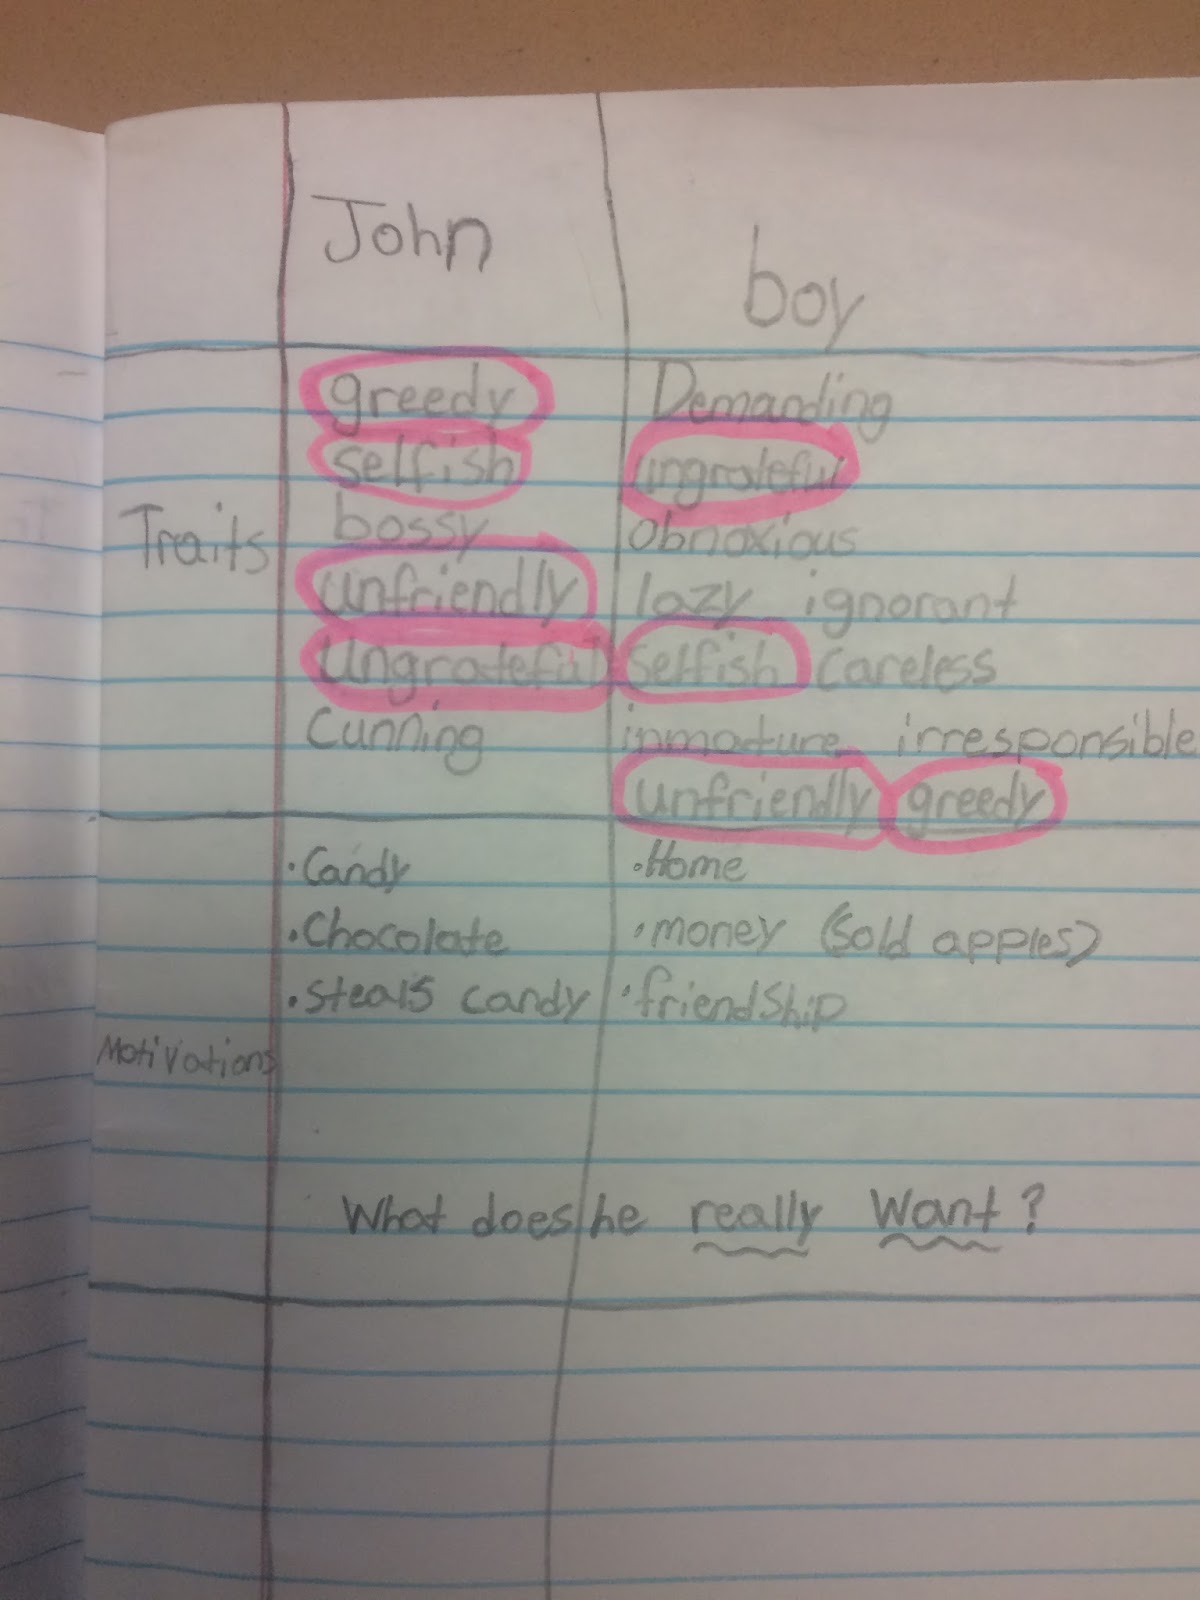 John boy
greedy Demanding
selfish ungrateful
Traits bossy obnoxious
unfriendly lazy ignorant
Ungrateful Selfish Careless
Cunning inmature irresponsible
unfriendly greedy
• Candy • Home
• Chocolate • money (sold apples)
• steals candy • friendship
Motivations
What does he really want?